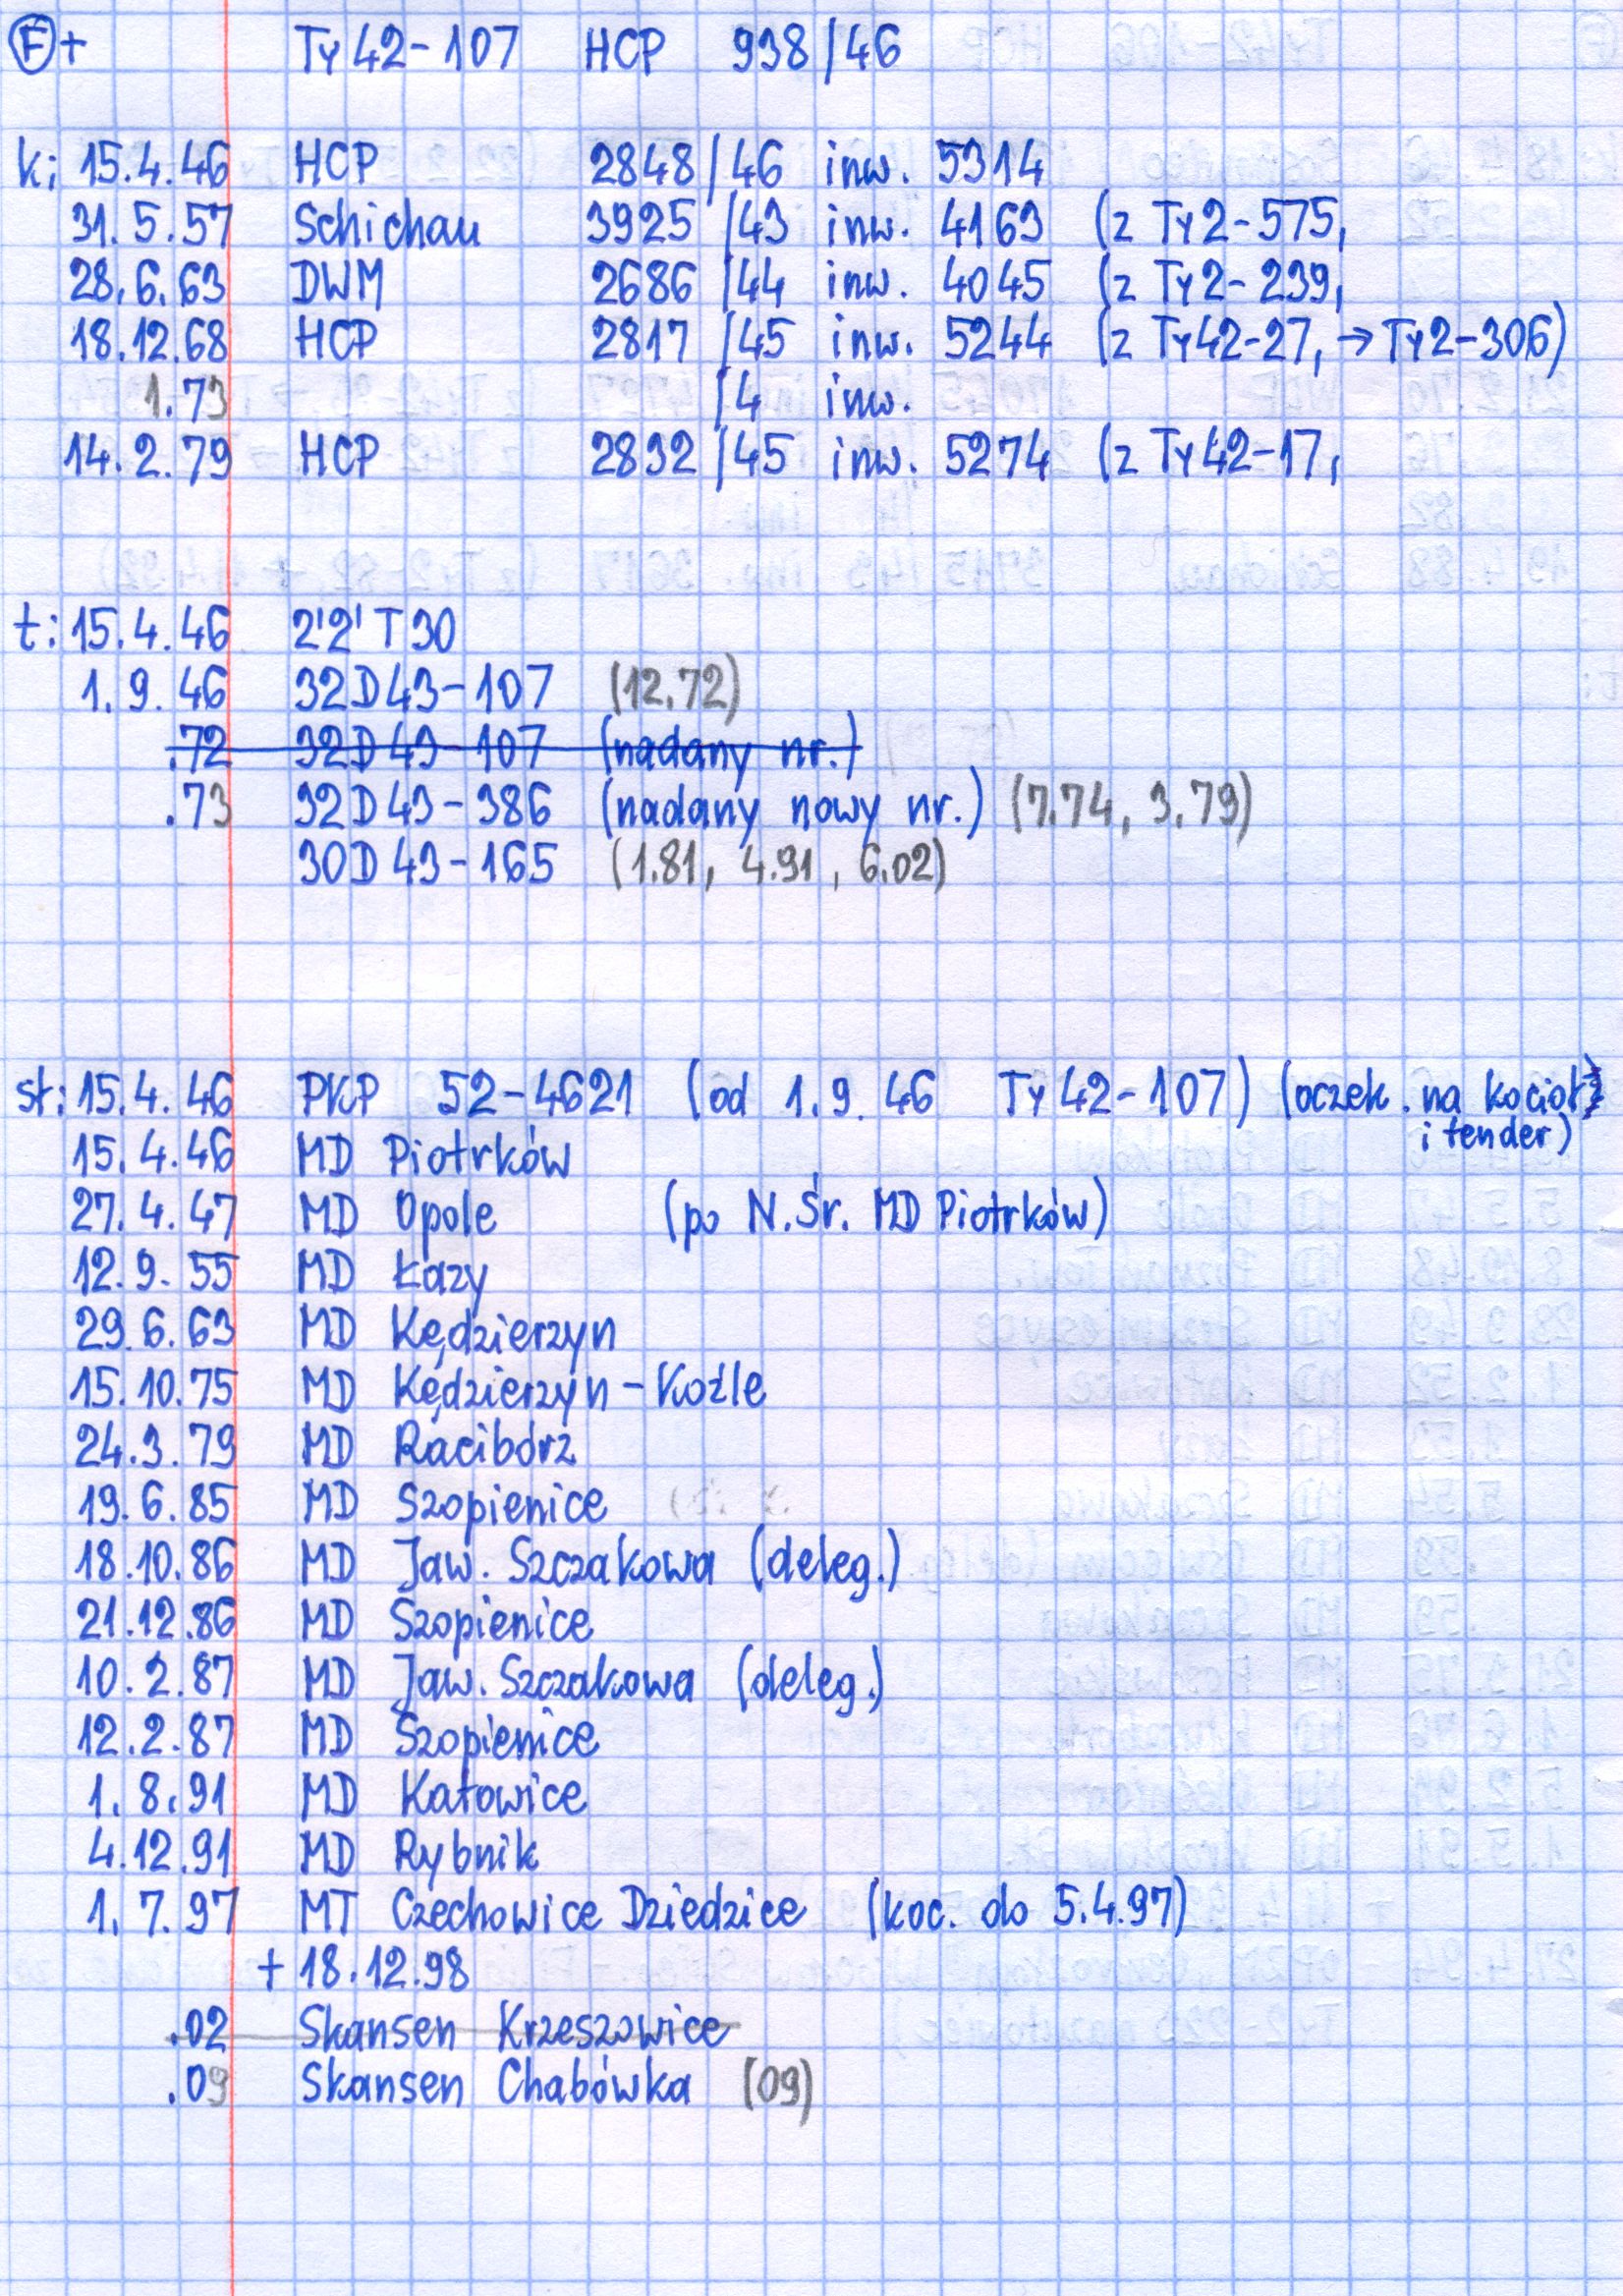 (F)+ Ty42-107 HCP 938/46
k: 15.4.46 HCP 2848/46 inw. 5314
31.5.57 Schichau 3925/43 inw. 4163 (z Ty2-575,
28.6.63 DWM 2686/44 inw. 4045 (z Ty2-239,
18.12.68 HCP 2817/45 inw. 5244 (z Ty42-27, → Ty2-306)
1.73 /4 inw.
14.2.79 HCP 2832/45 inw. 5274 (z Ty42-17,
t: 15.4.46 2'2'T30
1.9.46 32D43-107 (12.72)
.72 32D43-107 (nadany nr.)
.73 32D43-386 (nadany nowy nr.) (7.74, 3.79)
30D43-165 (1.81, 4.91, 6.02)
st: 15.4.46 PKP 52-4621 (od 1.9.46 Ty42-107) (oczek. na kocioł
i tender)
15.4.46 MD Piotrków
27.4.47 MD Opole (po N.Śr. MD Piotrków)
12.9.55 MD Łazy
29.6.63 MD Kędzierzyn
15.10.75 MD Kędzierzyn-Koźle
24.3.79 MD Racibórz
19.6.85 MD Szopienice
18.10.86 MD Jaw. Szczakowa (deleg.)
21.12.86 MD Szopienice
10.2.87 MD Jaw. Szczakowa (deleg.)
12.2.87 MD Szopienice
1.8.91 MD Katowice
4.12.91 MD Rybnik
1.7.97 MT Czechowice Dziedzice (koc. do 5.4.97)
+ 18.12.98
.02 Skansen Krzeszowice
.09 Skansen Chabówka (09)